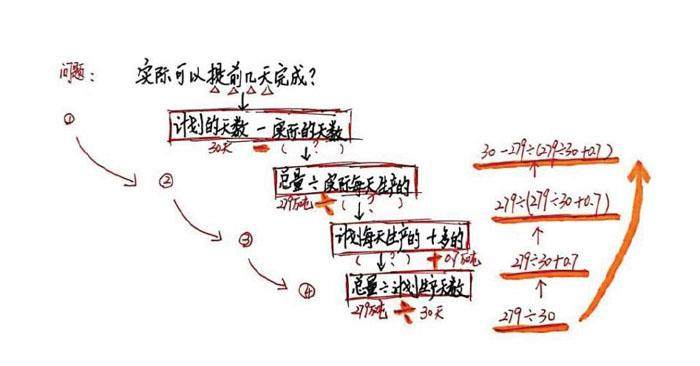 问题: 实际可以提前几天完成?
①
计划的天数 - 实际的天数
30天 - ( ? )
②
总量÷实际每天生产的
279万吨 ÷ ( ? )
③
计划每天生产的 + 多的
( ? ) + 0.7万吨
④
总量÷计划生产天数
279万吨 ÷ 30天
30-279÷(279÷30+0.7)
279÷(279÷30+0.7)
279÷30+0.7
279÷30